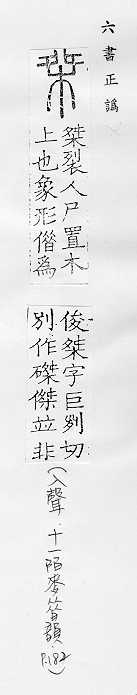 六書正譌
桀裂人尸置木
上也象形僭爲
俊桀字巨列切
別作磔傑竝非
(入聲.十一陌麥昔韻.P.182)